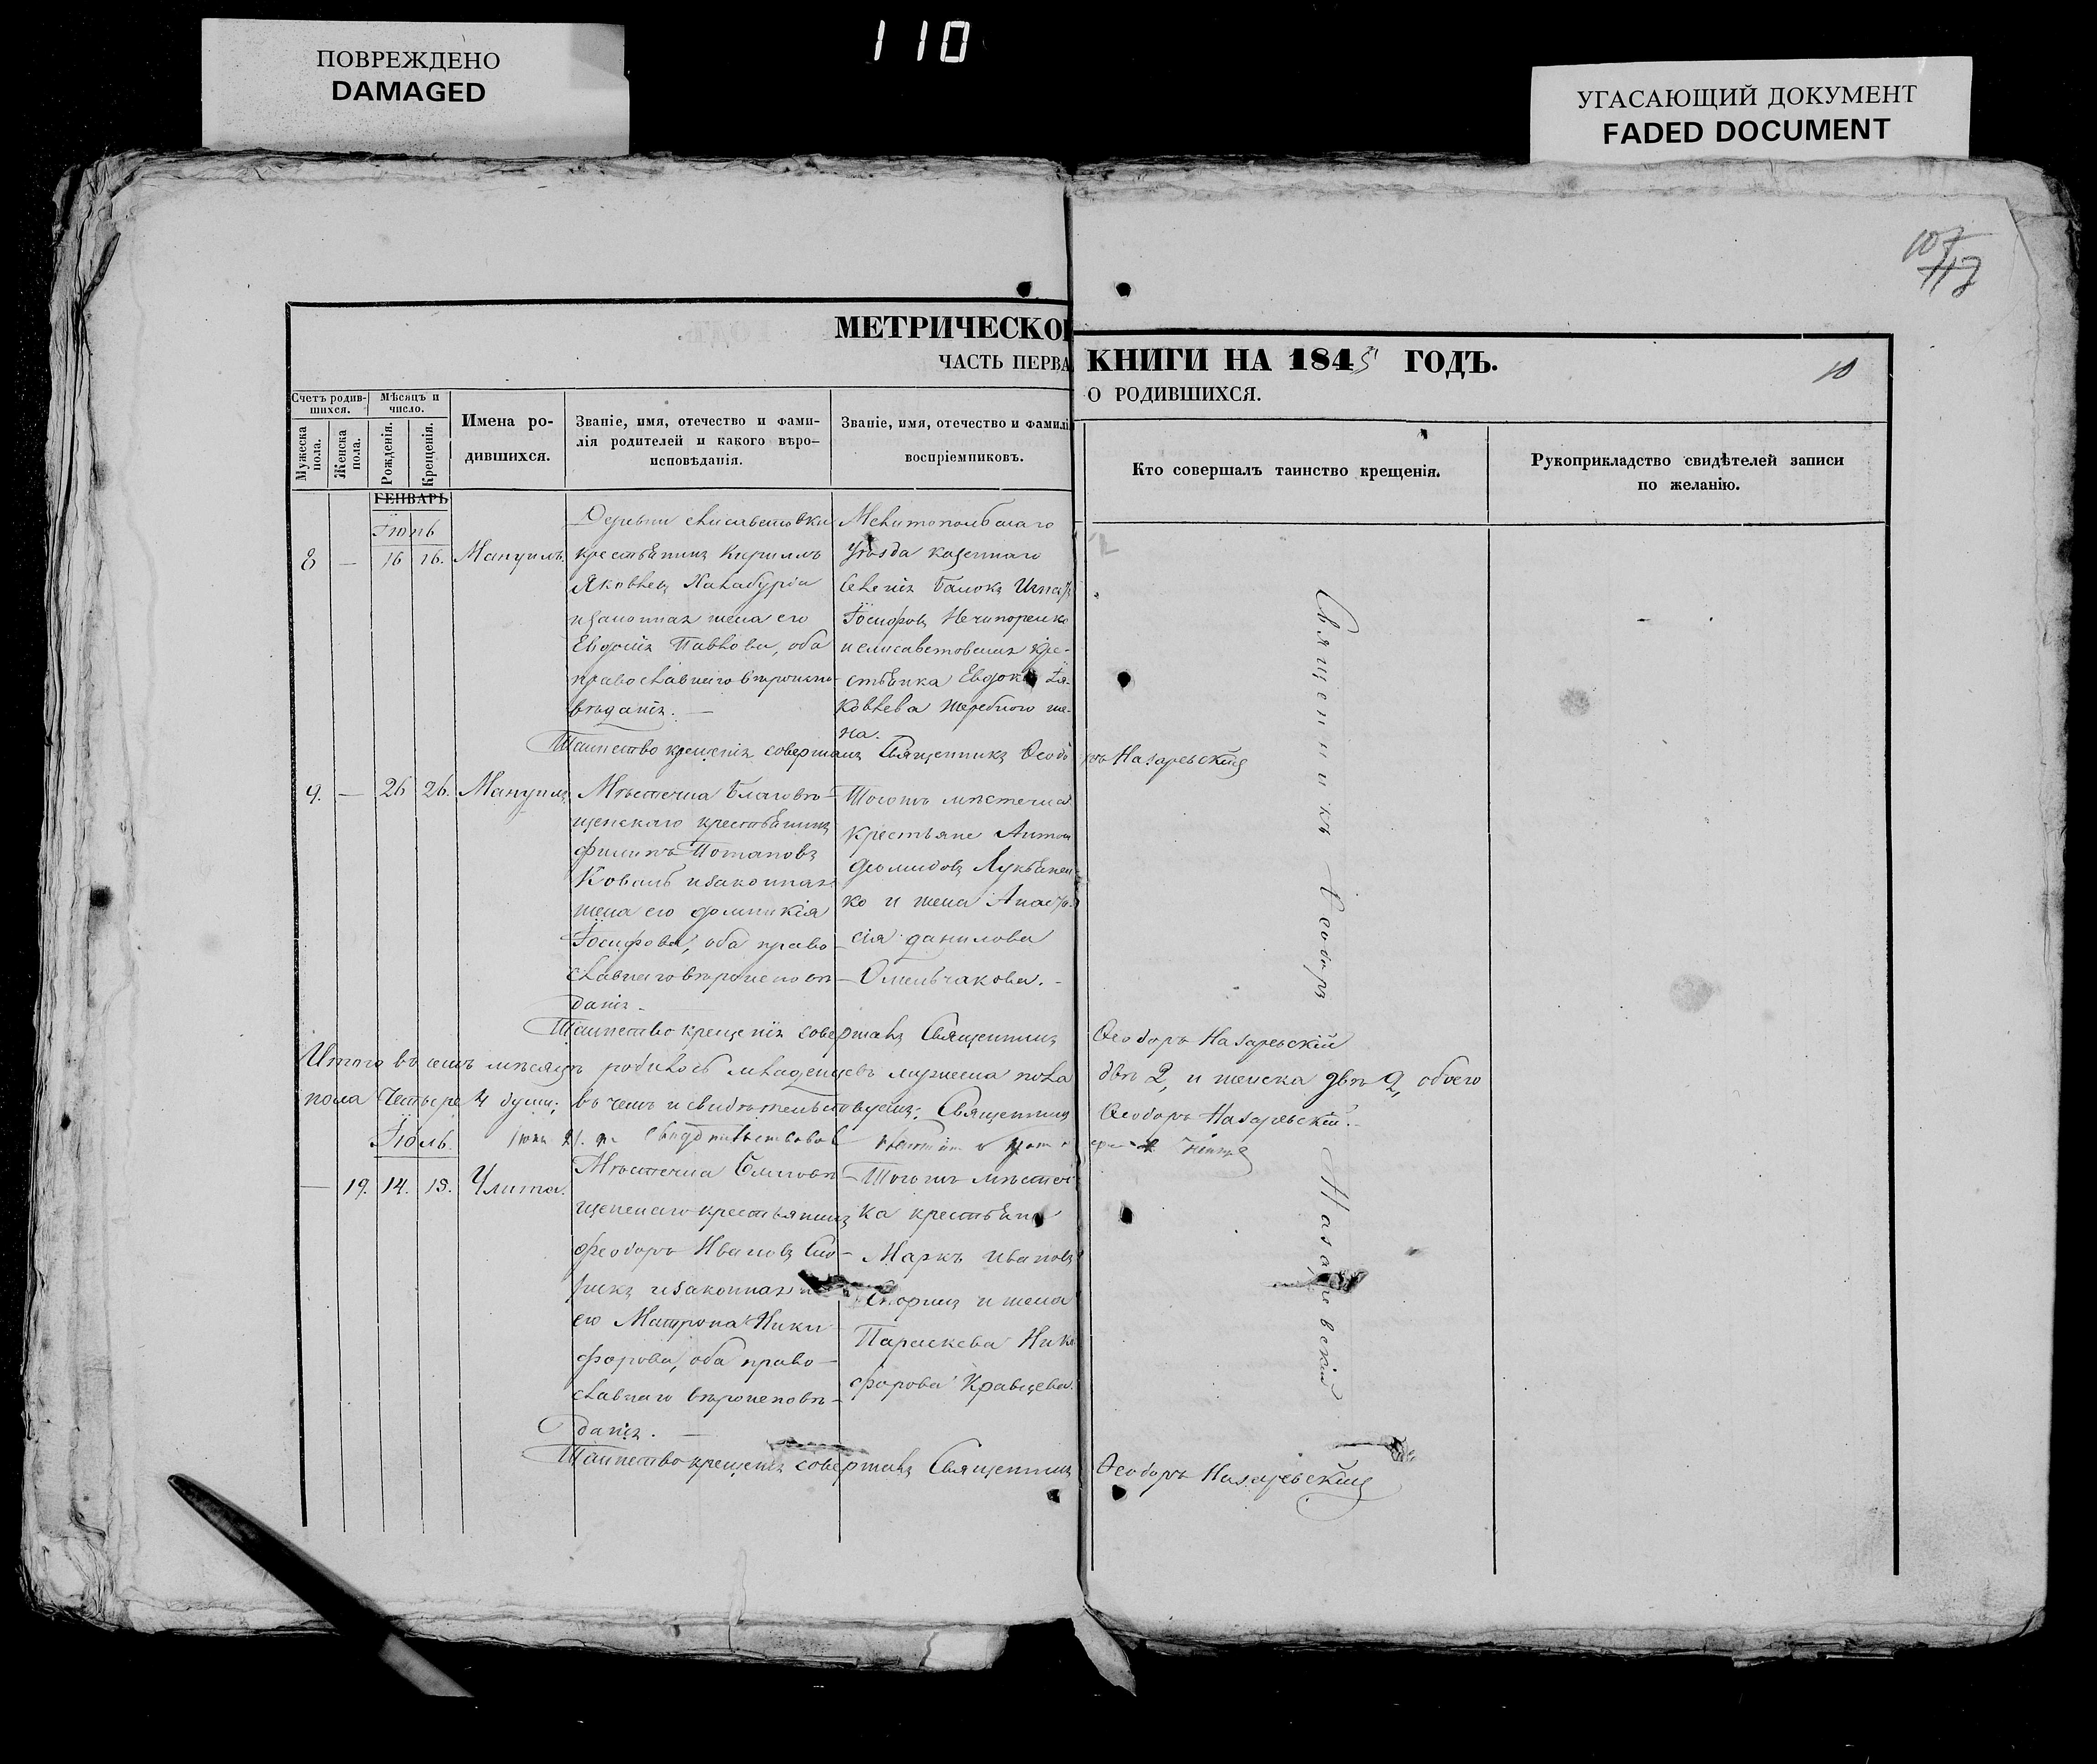 110
ПОВРЕЖДЕНО
DAMAGED
УГАСАЮЩИЙ ДОКУМЕНТ
FADED DOCUMENT
107
117
МЕТРИЧЕСКОЙ
ЧАСТЬ ПЕРВА
КНИГИ НА 1845 ГОДЪ.
10
О РОДИВШИХСЯ.
Счетъ родив-
шихся.
Мужеска пола.
Женска пола.
Мѣсяцъ и
число.
Рожденія.
Крещенія.
Имена ро-
дившихся.
Званіе, имя, отечество и фами-
лія родителей и какого вѣро-
исповѣданія.
Званіе, имя, отечество и фамилі
воспріемниковъ.
Кто совершалъ таинство крещенія.
Рукоприкладство свидѣтелей записи
по желанію.
ГЕНВАРЬ
Іюнь
8 — 16 16. Мануилъ
Деревни Елисаветовки
крестьянинъ Кириллъ
Яковлевъ
изаконная жена его
Евдокія Павлова, оба
православнаго вѣроиспо-
вѣданія. —
Мелитопольскаго
уѣзда казеннаго
селенія Балокъ
Іосифовъ Нечипоренко
и елисаветовская кре-
стьянка Евдокія Я-
ковлева
на.
Таинство крещенія совершалъ Священникъ Ѳеодоръ Назаревскій
9. — 26 26. Мануилъ
Мѣстечка Благовѣ-
щенскаго крестьянинъ
Филипъ Потаповъ
Коваль изаконная
жена его Домникія
Іосифова, оба право-
славнаго вѣроисповѣ-
данія.
Тогожъ мѣстечка
крестьяне Антон
Діомидовъ Лукьянен-
ко и жена Анаста-
сія Данилова
Омельчакова. -
Таинство крещенія совершалъ Священникъ Ѳеодоръ Назаревскій
Итого въ семъ мѣсяцѣ родилось младенцевъ мужеска пола двѣ 2, и женска двѣ 2, обоего
пола Четыре 4 души; въ чемъ и свидѣтельствуемъ: Священникъ Ѳеодоръ Назаревскій.
Іюль.
свидѣтельствовалъ
— 19. 14. 15. Улита.
Мѣстечка Благовѣ-
щенскаго крестьянинъ
Феодоръ Ивановъ Ско-
рикъ изаконная
его Матрона Ники-
форова, оба право-
славнаго вѣроисповѣ-
данія. —
Тогожъ мѣстеч
ка крестьяне
Маркъ Ивановъ
Скорикъ и жена
Параскева Ники
форова Кравцева.
Таинство крещенія совершалъ Священникъ Ѳеодоръ Назаревскій
Священникъ Ѳеодоръ Назаревскій